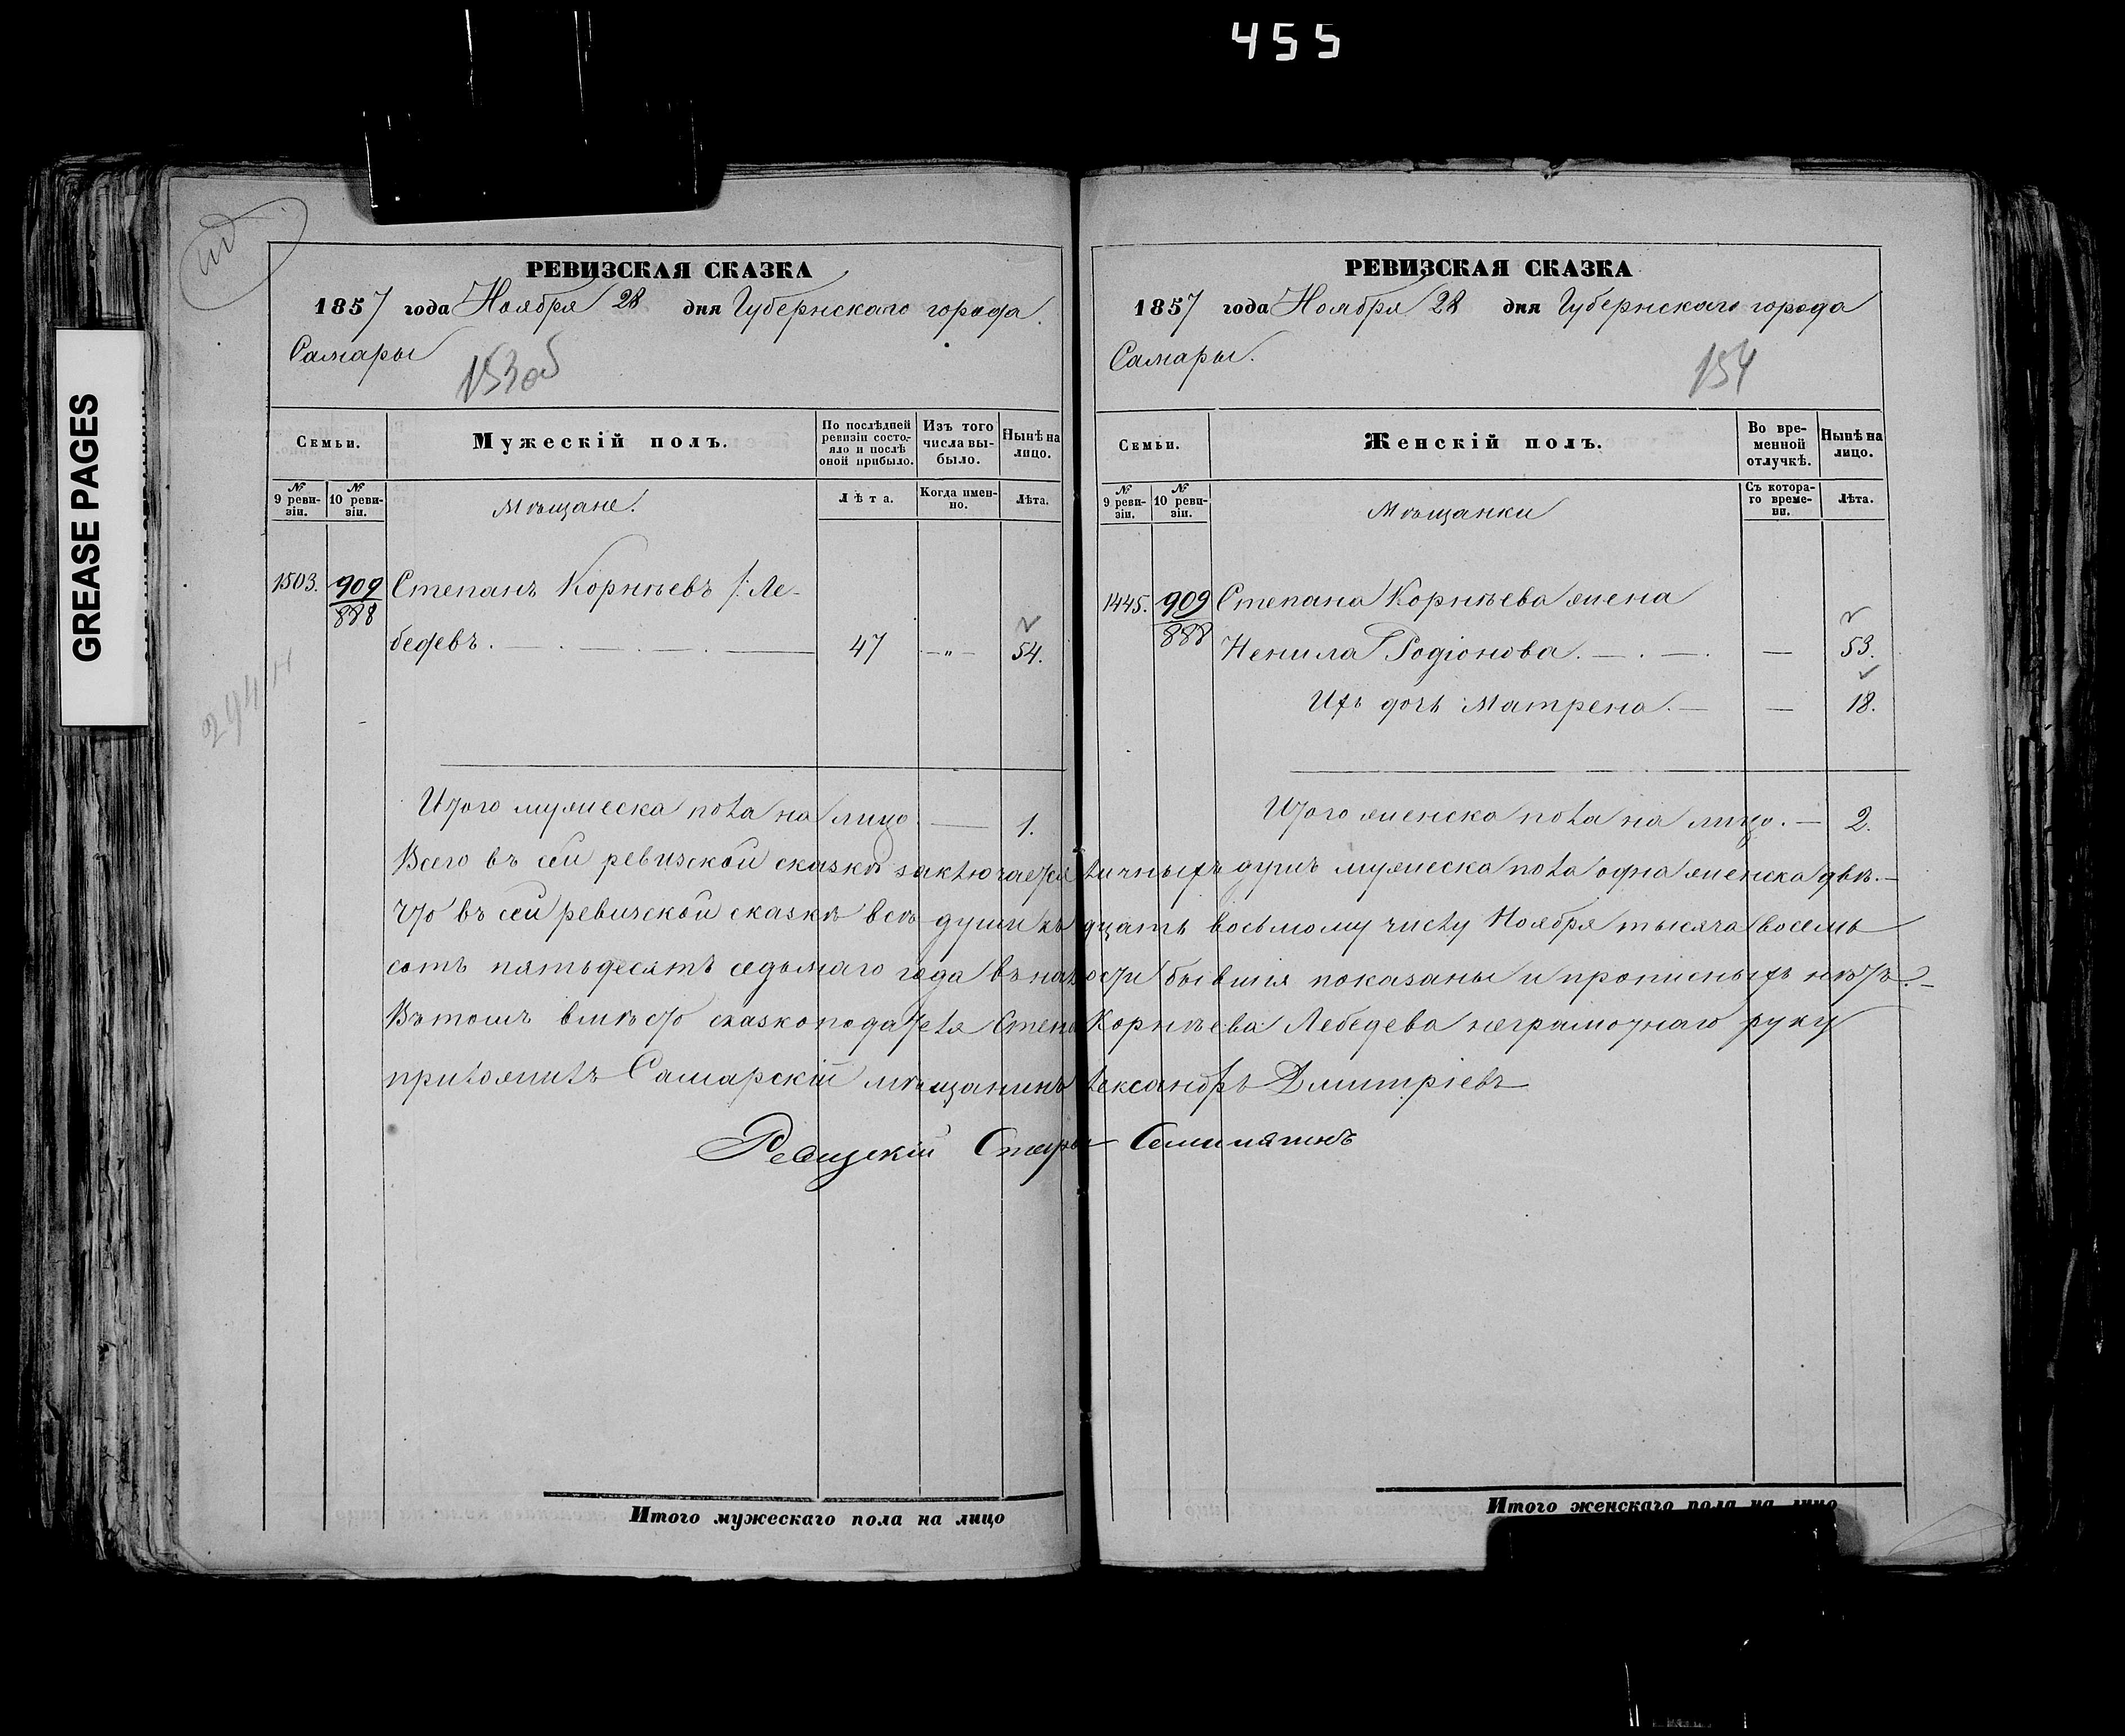 455
GREASE PAGES
РЕВИЗСКАЯ СКАЗКА
1857 года Ноября 28 дня Губернскаго города
Самары
153об
Семьи.
Мужескій полъ.
По послѣдней ревизіи состояло и послѣ оной прибыло.
Изъ того числа выбыло.
Нынѣ на лицо.
№ 9 ревизіи.
№ 10 ревизіи.
Мѣщане.
Лѣта.
Когда именно.
Лѣта.
1503. 909 Степанъ Корнѣевъ /: Ле-
888
бедевъ. 47 — „ — 54.
Итого мужеска пола на лицо. — 1.
Итого мужескаго пола на лицо
РЕВИЗСКАЯ СКАЗКА
1857 года Ноября 28 дня Губернскаго города
Самары.
154
Семьи.
Женскій полъ.
Во временной отлучкѣ.
Нынѣ на лицо.
№ 9 ревизіи.
№ 10 ревизіи.
Мѣщанки
Съ котораго времени.
Лѣта.
1445. 909 Степана Корнѣева жена
888
Ненила Родіонова. — 53.
Ихъ дочь Матрена. — — 18.
Итого женска пола на лицо. — 2.
Всего въ сей ревизской сказкѣ заключается личныхъ душъ мужеска пола одна женска двѣ. —
Что въ сей ревизской сказкѣ всѣ души къ дцать восьмому числу Ноября тысяча восемь
сотъ пятьдесятъ седьмаго года въ налости бывшія показаны и прописныхъ нѣтъ. —
Въ томъ вмѣсто сказкоподателя Степ Корнѣева Лебедева неграмотнаго руку
приложилъ Самарскій мѣщанинъ лександръ Дмитріевъ
Ревизскій Старо
Итого женскаго пола на лицо